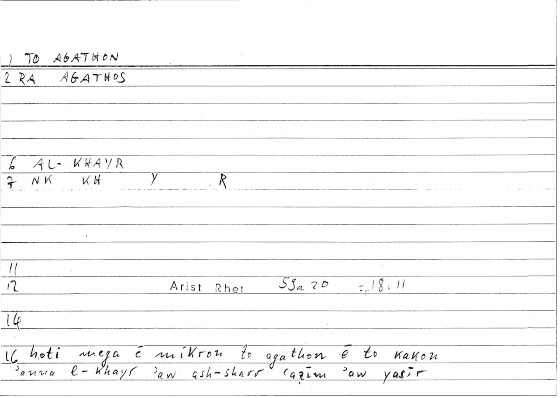 1 TO AGATHON
2 RA AGATHOS
6 AL- KHAYR
7 NK KH Y R
11
12 Arist Rhet 59a 20 = 18.11
14
16 hoti mega ē mikron to agathon ē to kakon
'anna l-khayr 'aw ash-sharr ʿaẓīm 'aw yasīr